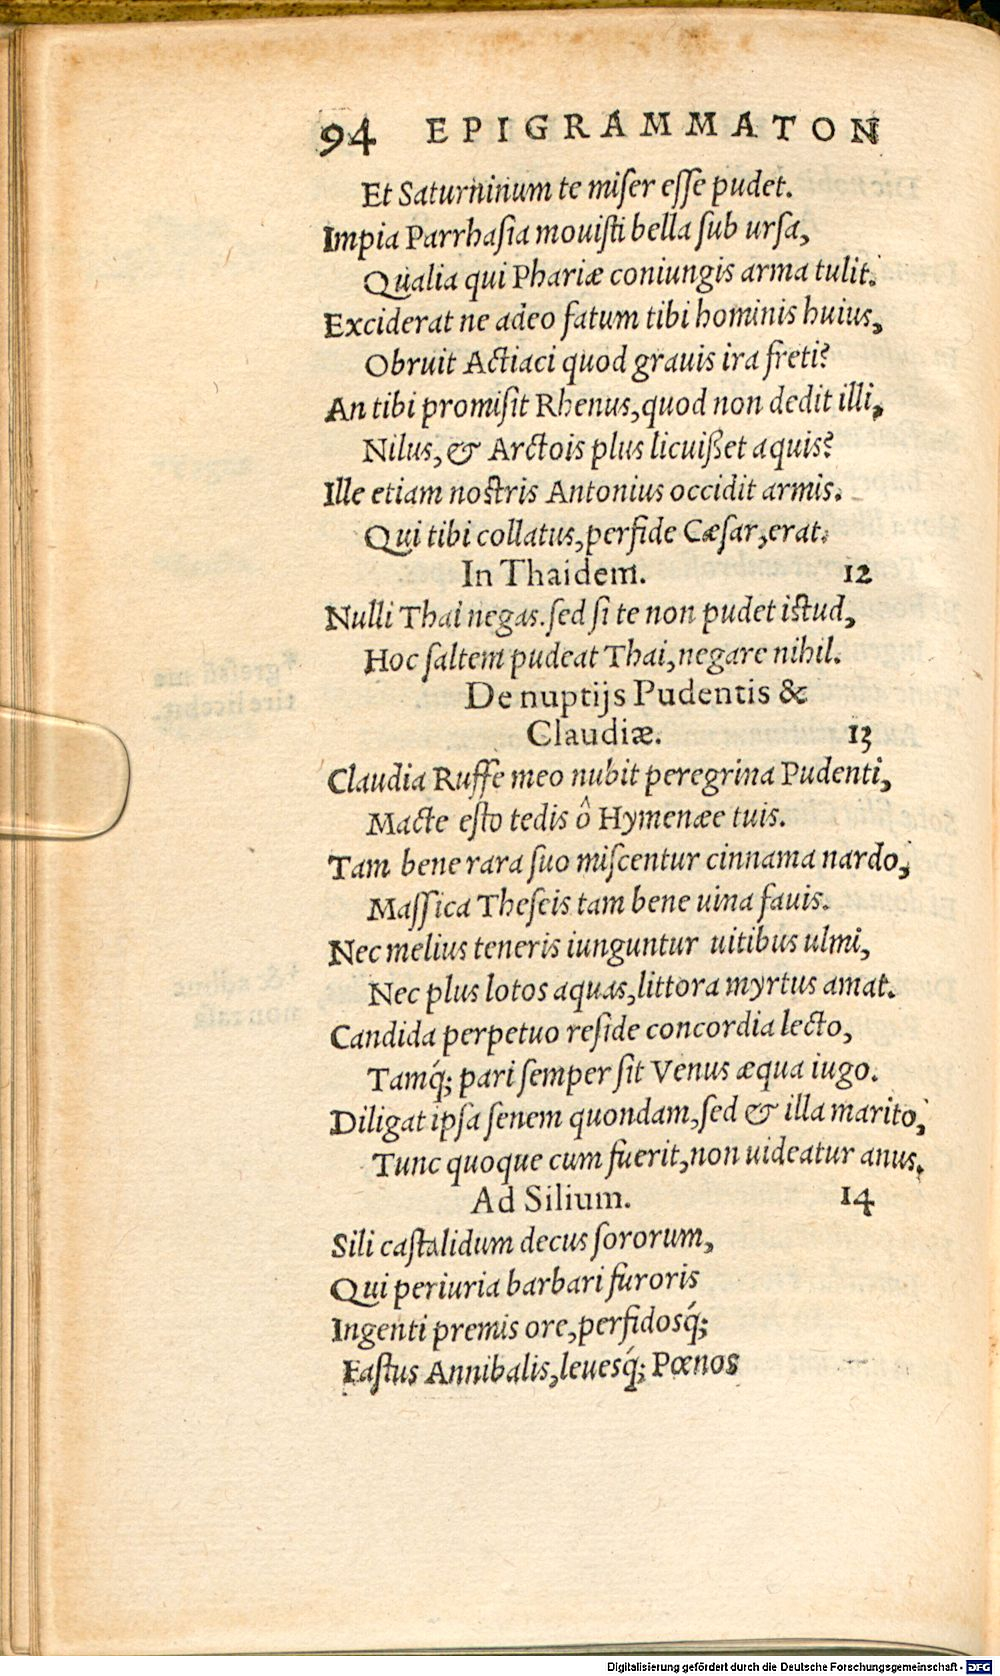 94 EPIGRAMMATON
Et Saturninum te miſer eſſe pudet.
Impia Parrhaſia mouiſti bella ſub urſa,
Qualia qui Phariæ coniungis arma tulit.
Exciderat ne adeo fatum tibi hominis huius,
Obruit Actiaci quod grauis ira freti?
An tibi promiſit Rhenus, quod non dedit illi,
Nilus, & Arctois plus licuißet aquis?
Ille etiam noſtris Antonius occidit armis.
Qui tibi collatus, perfide Cæſar, erat.
In Thaidem. 12
Nulli Thai negas. ſed ſi te non pudet iſtud,
Hoc ſaltem pudeat Thai, negare nihil.
De nuptijs Pudentis &
Claudiæ. 13
Claudia Ruffe meo nubit peregrina Pudenti,
Macte eſto tedis ô Hymenæe tuis.
Tam bene rara ſuo miſcentur cinnama nardo,
Maſſica Theſeis tam bene uina fauis.
Nec melius teneris iunguntur uitibus ulmi,
Nec plus lotos aquas, littora myrtus amat.
Candida perpetuo reſide concordia lecto,
Tamq́; pari ſemper ſit Venus æqua iugo.
Diligat ipſa ſenem quondam, ſed & illa marito,
Tunc quoque cum fuerit, non uideatur anus.
Ad Silium. 14
Sili caſtalidum decus ſororum,
Qui periuria barbari furoris
Ingenti premis ore, perfidosq́;
Faſtus Annibalis, leuesq́; Pœnos
Digitalisierung gefördert durch die Deutsche Forschungsgemeinschaft - DFG